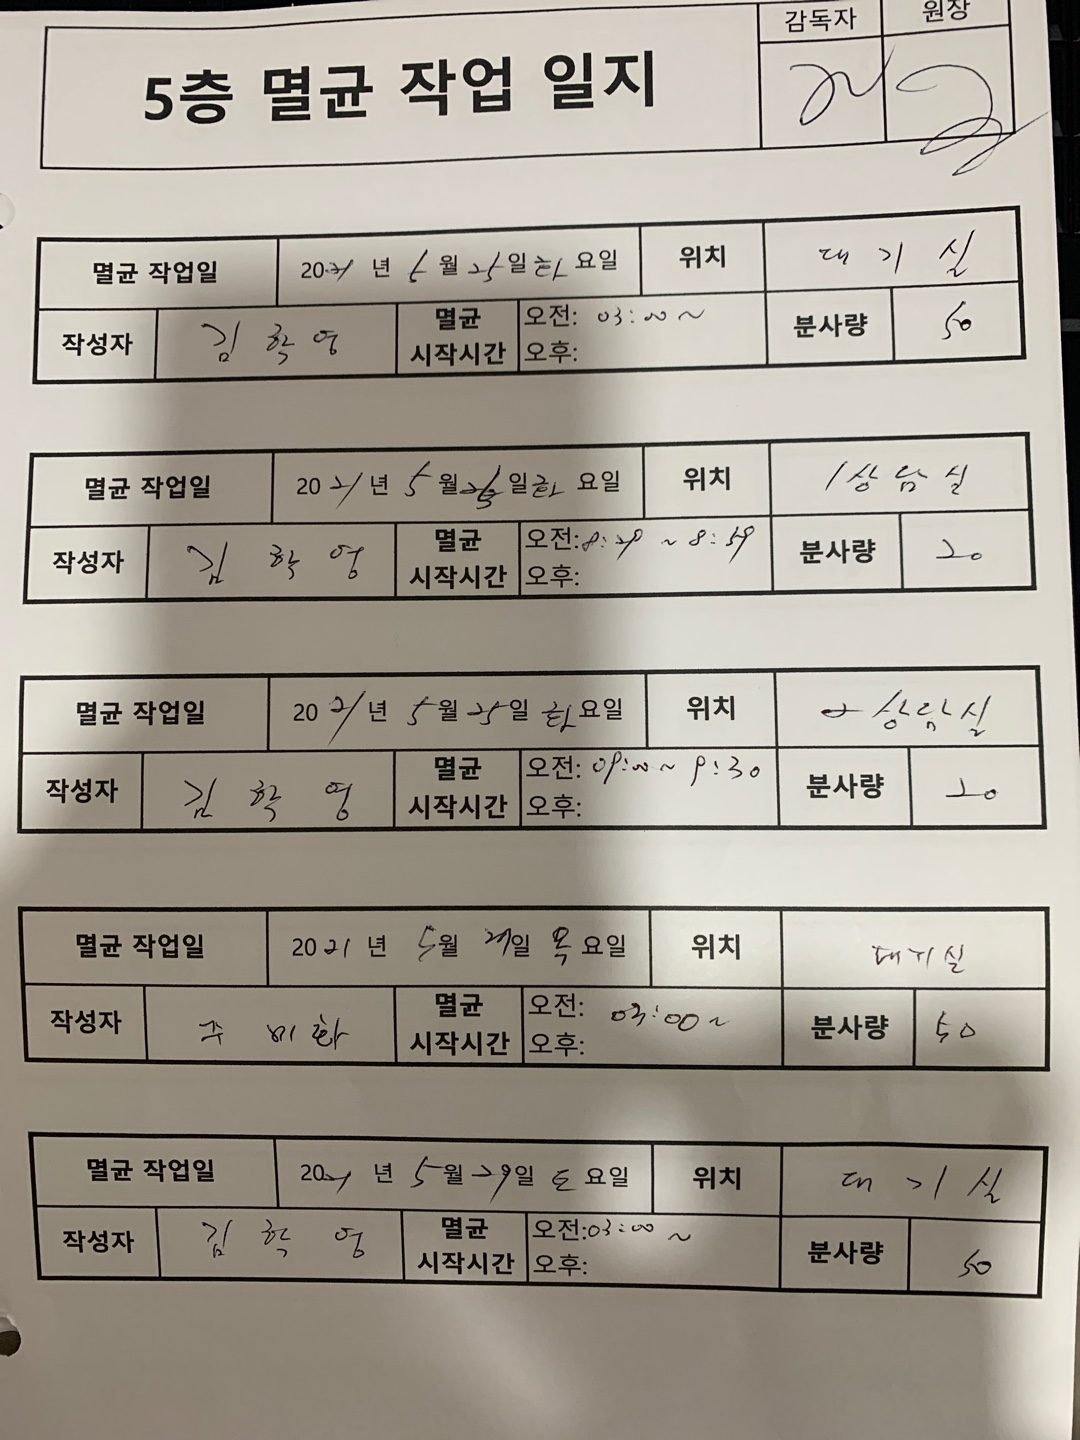 감독자 원장
5층 멸균 작업 일지
멸균 작업일 2021 년 5 월 25 일 화 요일 위치 대기실
작성자 김학영 멸균 시작시간 오전: 03:00 ~ 오후: 분사량 50
멸균 작업일 2021 년 5 월 일 화 요일 위치 1상담실
작성자 김학영 멸균 시작시간 오전: 8:29 ~ 8:59 오후: 분사량 20
멸균 작업일 2021 년 5 월 25 일 화 요일 위치 2상담실
작성자 김학영 멸균 시작시간 오전: 09:00 ~ 9:30 오후: 분사량 20
멸균 작업일 2021 년 5 월 일 목 요일 위치 대기실
작성자 주미화 멸균 시작시간 오전: 03:00 ~ 오후: 분사량 50
멸균 작업일 2021 년 5 월 29 일 토 요일 위치 대기실
작성자 김학영 멸균 시작시간 오전: 03:00 ~ 오후: 분사량 50